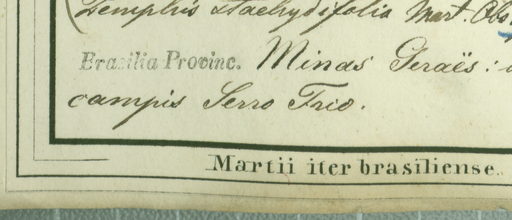 (Lemphis stachydifolia Mart. Obs
Brasilia Provinc. Minas Geraës: i
campis Serro Frio.
Martii iter brasiliense.